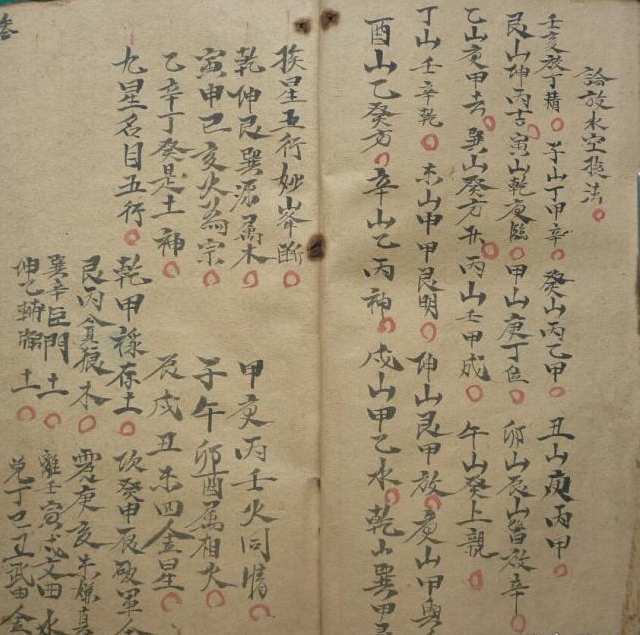 論放水空挨法
壬亥放丁精 子山丁甲辛 癸山丙乙甲 丑山庚丙甲
艮山坤丙吉 寅山乾庚臨 甲山庚丁位 卯山辰山皆放辛
乙山庚甲去 巽山癸方升 丙山壬甲成 午山癸上親
丁山壬辛乾 未山申甲艮明 坤山艮甲放 庚山甲與
酉山乙癸方 辛山乙丙神 戌山甲乙水 乾山巽甲
挨星五行妙山峯斷
乾坤艮巽源屬木 甲庚丙壬火同情
寅申巳亥火為宗 子午卯酉屬相火
乙辛丁癸是土神 辰戌丑未四金星
九星名目五行
乾甲祿存土 坎癸申辰破軍金
艮丙貪狼木 震庚亥未廉貞
巽辛巨門土 離壬寅戌文曲水
坤乙輔弼土 兌丁巳丑武曲金